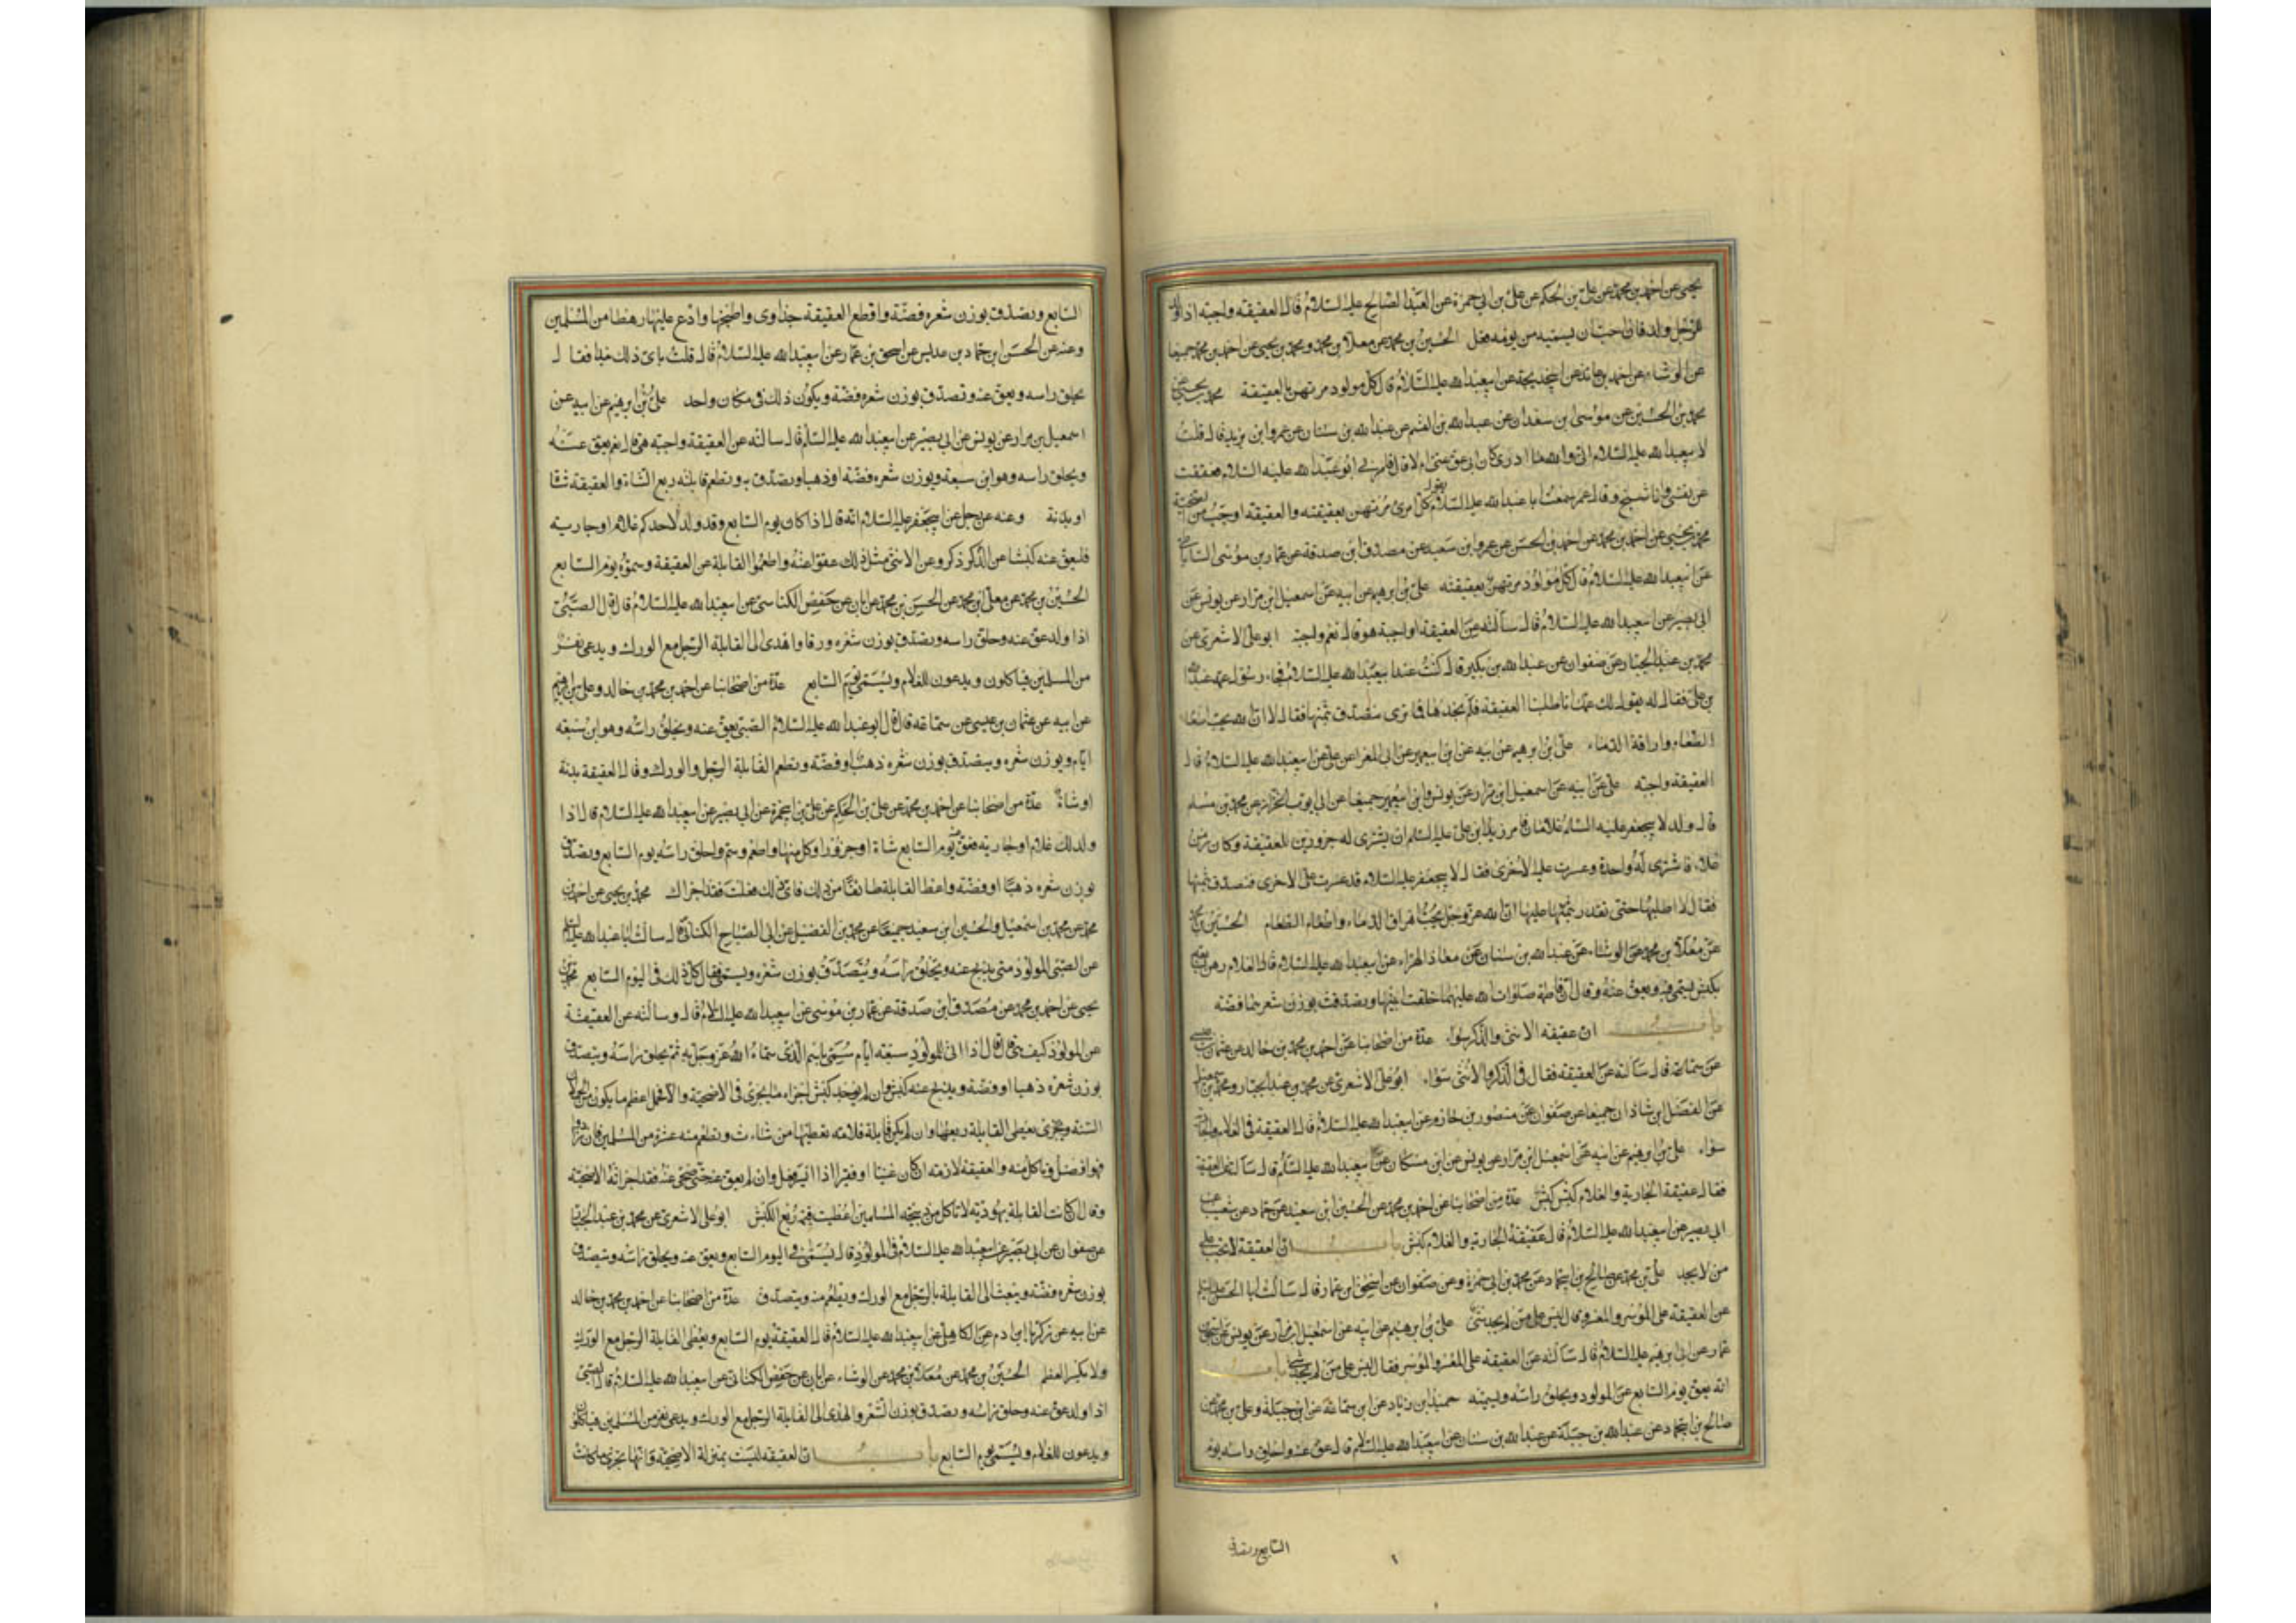 يحيى عن احمد بن محمد عن علي بن الحكم عن علي بن ابي حمزة عن العبد الصالح عليه السلام قال العقيقة واجبة اذا ولد
للرجل ولد فان احب ان يسميه من يومه فعل الحسين بن محمد عن معلى بن محمد ومحمد بن يحيى عن احمد بن محمد جميعا
عن الوشاء عن احمد بن عائذ عن ابي خديجة عن ابي عبد الله عليه السلام قال كل مولود مرتهن بالعقيقة محمد بن يحيى عن
محمد بن الحسين عن موسى بن سعدان عن عبد الله بن القسم عن عبد الله بن سنان عن عمر بن يزيد قال قلت
لابي عبد الله عليه السلام اني والله ما ادري كان ابي عق عني ام لا قال فامرني ابو عبد الله عليه السلام فعققت
عن نفسي وانا شيخ وقال عمر سمعت ابا عبد الله عليه السلام يقول كل امرئ مرتهن بعقيقته والعقيقة اوجب من الاضحية
محمد بن يحيى عن احمد بن محمد عن احمد بن الحسن عن عمرو بن سعيد عن مصدق ابن صدقة عن عمار بن موسى الساباطي
عن ابي عبد الله عليه السلام قال كل مولود مرتهن بعقيقته علي بن ابرهيم عن ابيه عن اسمعيل ابن مرار عن يونس عن
ابي بصير عن ابي عبد الله عليه السلام قال سألته عن العقيقة اواجبة هو قال نعم واجبة ابو علي الاشعري عن
محمد بن عبد الجبار عن صفوان عن عبد الله بن بكير قال كنت عند ابي عبد الله عليه السلام فجاء رسول عمه عبد الله
بن علي فقال له يقول لك عمك انا طلبنا العقيقة فلم نجدها فما ترى نتصدق بثمنها فقال لا ان الله يحب اطعام
الطعام واراقة الدماء علي ابن ابرهيم عن ابيه عن ابن ابي عمير عن ابي المغرا عن علي عن ابي عبد الله عليه السلام قال
العقيقة واجبة علي عن ابيه عن اسمعيل ابن مرار عن يونس وابن ابي عمير جميعا عن ابي ايوب الخراز عن محمد بن مسلم
قال ولد لابي جعفر عليه السلم غلامان فامر زيد ابن علي عليه السلم ان يشتري له جزورين للعقيقة وكان زمن
غلاء فاشترى له واحدة وعسرت عليه الاخرى فقال لابي جعفر عليه السلام قد عسرت علي الاخرى فنتصدق بثمنها
فقال لا اطلبها حتى نقدر بثمنها عليها ان الله عز وجل يحب اهراق الدماء واطعام الطعام الحسين بن محمد
عن معلى بن محمد عن الوشاء عن عبد الله بن سنان عن معاذ الهراء عن ابي عبد الله عليه السلام قال الغلام رهن بسابعه
بكبش يسمى فيه ويعق عنه وقال ان فاطمة صلوات الله عليها حلقت ابنيها وتصدقت بوزن شعرهما فضة
باب ان عقيقة الانثى والذكر سواء عدة من اصحابنا عن احمد بن محمد بن خالد عن عثمان بن عيسى
عن سماعة قال سألته عن العقيقة فقال في الذكر والانثى سواء ابو علي الاشعري عن محمد بن عبد الجبار ومحمد بن اسمعيل
عن الفضل ابن شاذان جميعا عن صفوان عن منصور بن حازم عن ابي عبد الله عليه السلام قال العقيقة في الغلام والجارية
سواء علي بن ابرهيم عن ابيه عن اسمعيل ابن مرار عن يونس عن ابن مسكان عن ابي عبد الله عليه السلم قال سألته عن العقيقة
فقال عقيقة الجارية والغلام كبش كبش عدة من اصحابنا عن احمد بن محمد عن الحسين ابن سعيد عن حماد عن شعيب عن
ابي بصير عن ابي عبد الله عليه السلام قال عقيقة الجارية والغلام كبش باب ان العقيقة لا تجب على
من لا يجد علي بن محمد عن صالح بن ابي حماد عن محمد بن ابي حمزة وعن صفوان عن اسحق ابن عمار قال سألت ابا الحسن عليه السلم
عن العقيقة على الموسر والمعسر قال ليس على من لم يجد شيء علي بن ابرهيم عن ابيه عن اسمعيل ابن مرار عن يونس عن اسحق
عمار عن ابي ابرهيم عليه السلام قال سألته عن العقيقة على المعسر والموسر فقال ليس على من لم يجد شيء باب
انه يعق يوم السابع عن المولود ويحلق راسه ويسميه حميد ابن زياد عن ابن سماعة عن ابن جبلة وعلي بن محمد عن
صالح بن ابي حماد عن عبد الله بن جبلة عن عبد الله بن سنان عن ابي عبد الله عليه السلام قال عق عنه واحلق راسه يوم
السابع وتصدق
السابع وتصدق بوزن شعره فضة واقطع العقيقة جذاوى واطبخها وادع عليها رهطا من المسلمين
وعنه عن الحسن ابن حماد بن عديس عن اسحق بن عمار عن ابي عبد الله عليه السلام قال قلت باي ذلك نبدا فقال
يحلق راسه ويعق عنه وتصدق بوزن شعره فضة ويكون ذلك في مكان واحد علي بن ابرهيم عن ابيه عن
اسمعيل بن مرار عن يونس عن ابي بصير عن ابي عبد الله عليه السلم قال سالته عن العقيقة واجبة هي قال نعم يعق عنه
ويحلق راسه وهو ابن سبعة ويوزن شعره فضة او ذهبا وتصدق به وتطعم قابلته ربع الشاة والعقيقة شاة
او بدنة وعنه عن رجل عن ابي جعفر عليه السلام انه قال اذا كان يوم السابع وقد ولد لاحدكم غلام او جارية
فليعق عنه كبشا عن الذكر ذكر وعن الانثى مثل ذلك عقوا عنه واطعموا القابلة من العقيقة وسموه يوم السابع
الحسين بن محمد عن معلى ابن محمد عن الحسن بن محمد عن ابان عن حفص الكناسي عن ابي عبد الله عليه السلام قال قال الصبي
اذا ولد عق عنه وحلق راسه وتصدق بوزن شعره ورقا واهدى الى القابلة الرجل مع الورك ويدعى نفر
من المسلمين فياكلون ويدعون للغلام ويسمى يوم السابع عدة من اصحابنا عن احمد بن محمد بن خالد وعلي بن ابرهيم
عن ابيه عن عثمان بن عيسى عن سماعة قال قال ابو عبد الله عليه السلام الصبي يعق عنه ويحلق راسه وهو ابن سبعة
ايام ويوزن شعره ويتصدق بوزن شعره ذهب او فضة وتطعم القابلة الرجل والورك وقال العقيقة بدنة
او شاة عدة من اصحابنا عن احمد بن محمد عن علي بن الحكم عن علي بن ابي حمزة عن ابي بصير عن ابي عبد الله عليه السلام قال اذا
ولد لك غلام او جارية فعق عنه يوم السابع شاة او جزورا وكل منها واطعم وسم واحلق راسه يوم السابع وتصدق
بوزن شعره ذهبا او فضة واعط القابلة طائفة من ذلك فاي ذلك فعلت فقد اجزاك محمد بن يحيى عن احمد بن
محمد عن محمد بن اسمعيل والحسين ابن سعيد جميعا عن محمد بن الفضيل عن ابي الصباح الكناني قال سالت ابا عبد الله عليه السلم
عن الصبي المولود متى يذبح عنه ويحلق راسه ويتصدق بوزن شعره ويسمى فقال كل ذلك في اليوم السابع محمد بن
يحيى عن احمد بن محمد عن مصدق ابن صدقة عن عمار بن موسى عن ابي عبد الله عليه السلام قال وسألته عن العقيقة
عن المولود كيف هي قال قال اذا اتى للمولود سبعة ايام سمي باسم الذي سماه الله عز وجل به ثم يحلق راسه ويتصدق
بوزن شعره ذهبا او فضة ويذبح عنه كبش وان لم يوجد كبش اجزاه ما يجزى في الاضحية والا فحمل اعظم ما يكون من حملان
السنة ويعطى القابلة ربعها وان لم يكن قابلة فلامه تعطيها من شاءت وتطعم منه عشرة من المسلمين فان زادوا
فهو افضل وياكل منه والعقيقة لازمة ان كان غنيا او فقيرا اذا ايسر فعل وان لم يعق عنه حتى ضحى عنه فقد اجزاته الاضحية
وقال ان كانت القابلة يهودية لا تاكل من ذبيحة المسلمين اعطيت قيمة ربع الكبش ابو علي الاشعري عن محمد بن عبد الجبار
عن صفوان عن ابي بصير عن ابي عبد الله عليه السلام في المولود قال يسمى في اليوم السابع ويعق عنه ويحلق راسه ويتصدق
بوزن شعره فضة ويبعث الى القابلة بالرجل مع الورك ويطعم منه ويتصدق عدة من اصحابنا عن احمد بن محمد بن خالد
عن ابيه عن زكريا ابن ادم عن الكاهلي عن ابي عبد الله عليه السلام قال العقيقة يوم السابع ويعطى القابلة الرجل مع الورك
ولا يكسر العظم الحسين بن محمد عن معلى بن محمد عن الوشاء عن ابان عن حفص الكناسي عن ابي عبد الله عليه السلام قال الصبي
اذا ولد عق عنه وحلق راسه وتصدق بوزن الشعر واهدى الى القابلة الرجل مع الورك ويدعى نفر من المسلمين فياكلون
ويدعون للغلام ويسمى يوم السابع باب ان العقيقة ليست بمنزلة الاضحية وانها تجزي ما كانت